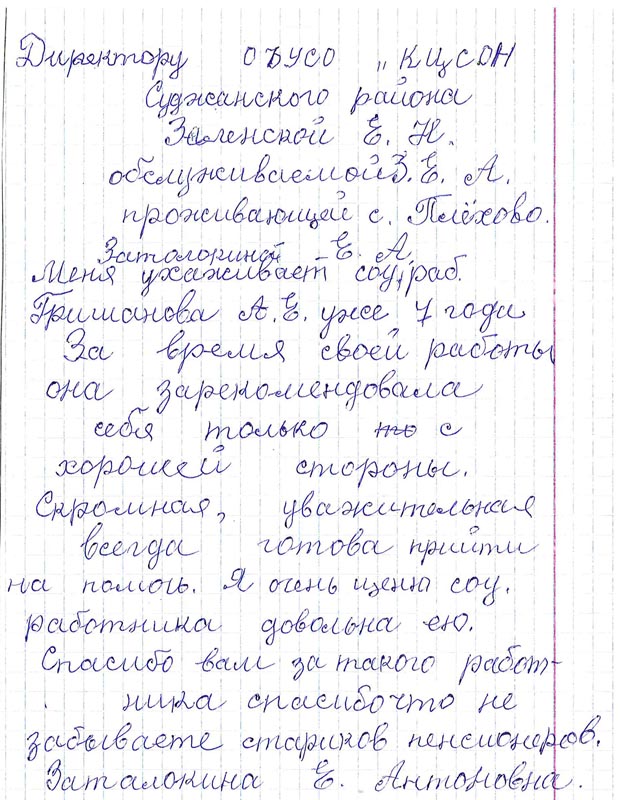 Директору ОБУСО „КЦСОН
Суджанского района
Зеленской Е. Н.
обслуживаемой З. Е. А.
проживающей с. Плёхово.
Затолокиной Е. А.
Меня ухаживает соц. раб.
Гришанова А. Е. уже 7 годи
За время своей работы
она зарекомендовала
себя только то с
хорошей стороны.
Скромная, уважительная
всегда готова прийти
на помочь. Я очень ценю соц.
работника довольна ею.
Спасибо вам за такого работ-
ника спасибо что не
забываете стариков пенсионеров.
Заталокина Е. Антоновна.